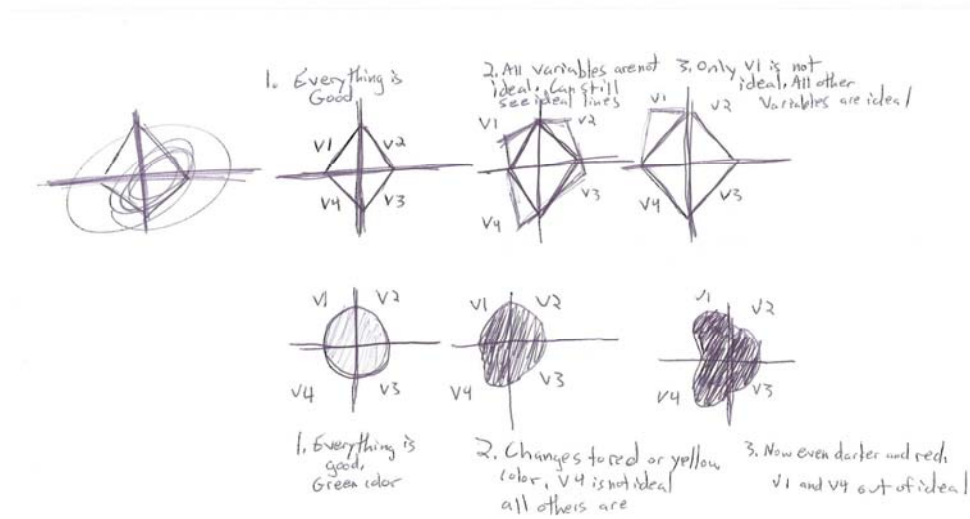 1. Everything is
Good
V1
V2
V4
V3
2. All variables are not
ideal. Can still
see ideal lines
V1
V2
V3
V4
3. Only V1 is not
ideal. All other
Variables are ideal
V1
V2
V4
V3
V1
V2
V4
V3
1. Everything is
good.
Green color
V1
V2
V4
V3
2. Changes to red or yellow
color, V4 is not ideal
all others are
V1
V2
V4
V3
3. Now even darker and red.
V1 and V4 out of ideal